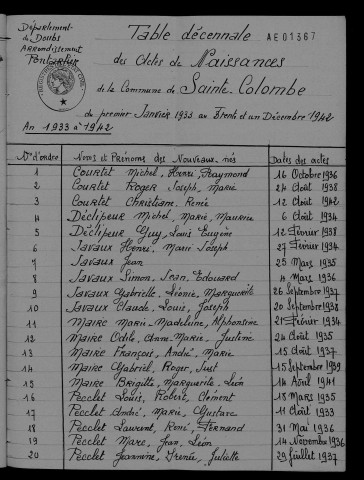 Département
du Doubs
Arrondissement
Pontarlier
Table décennale
AE01367
des Actes de Naissances
de la Commune de Sainte-Colombe
du premier Janvier 1933 au Trente et un Décembre 1942
An 1933 à 1942
Nos d'ordre Noms et Prénoms des Nouveaux-nés Dates des actes
1 Courtet Michel, Henri, Raymond 16 Octobre 1936
2 Courtet Roger Joseph, Marie 24 Août 1938
3 Courtet Christiane, Renée 12 Août 1942
4 Déclipeur Michel, Marie, Maurice 6 Août 1934
5 Déclipeur Guy, Louis Eugène 12 Février 1938
6 Javaux Henri, Marie Joseph 27 Février 1934
7 Javaux Jean 25 Mars 1935
8 Javaux Simon, Jean, Edouard 4 Mars 1936
9 Javaux Gabrielle, Léonie, Marguerite 26 Septembre 1937
10 Javaux Claude, Louis, Joseph 20 Septembre 1938
11 Maire Marie-Madeleine, Alphonsine 21 Février 1934
12 Maire Odile, Anne-Marie, Justine 24 Août 1935
13 Maire François, André, Marie 15 Août 1937
14 Maire Gabriel, Roger, Just 15 Septembre 1939
15 Maire Brigitte, Marguerite, Léon 14 Août 1941
16 Pecclet Louis, Robert, Clément 18 Mars 1935
17 Pecclet André, Marie, Gustave 11 Août 1933
18 Pecclet Laurent, René, Fernand 31 Mai 1936
19 Pecclet Marc, Jean, Léon 14 Novembre 1936
20 Pecclet Jeannine, Irénée, Juliette 29 Juillet 1937